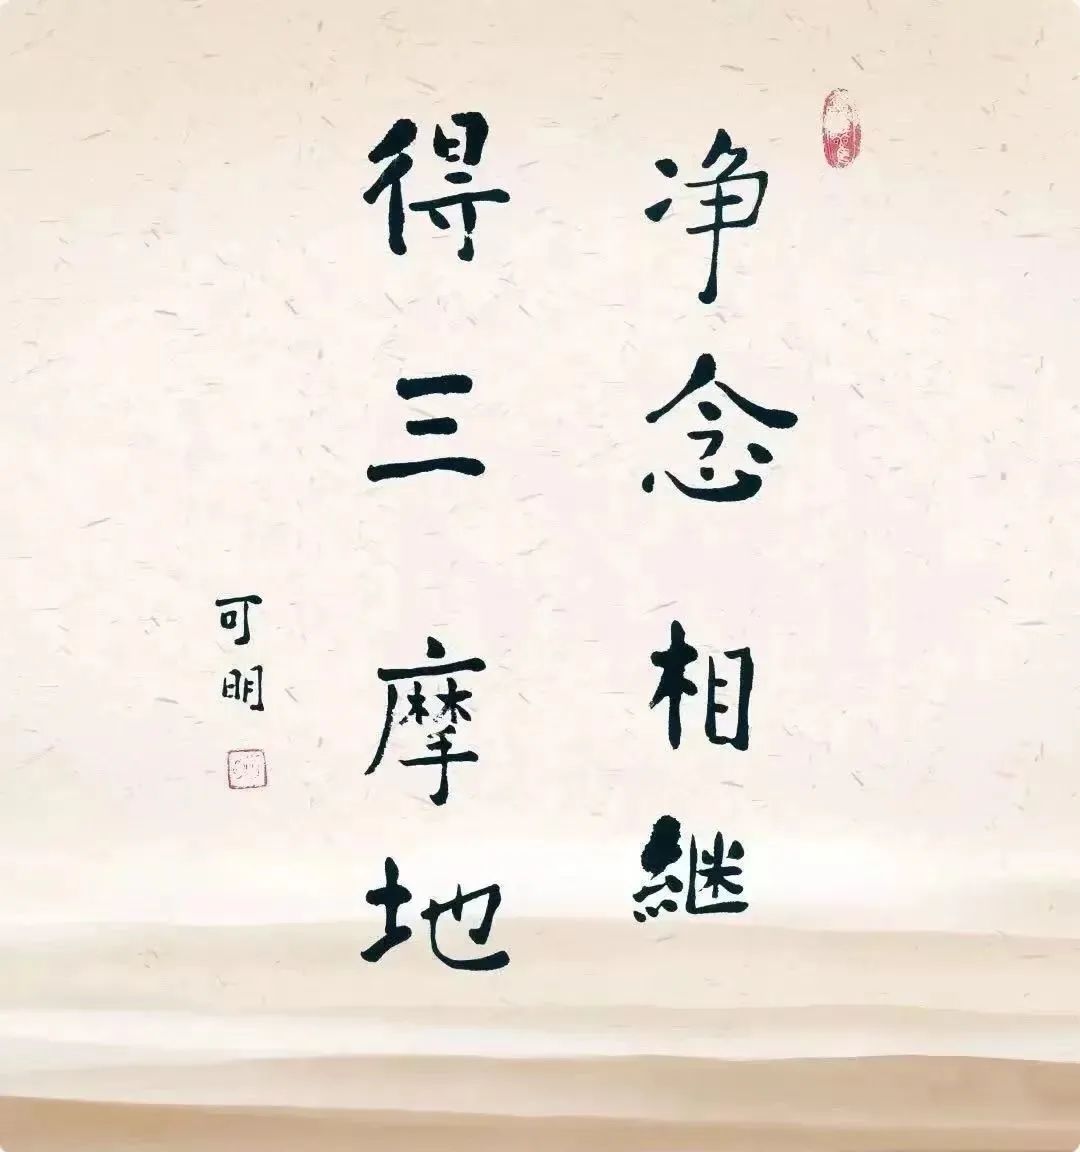 净念相継
得三摩地
可明